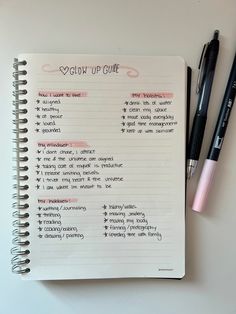 GLOW UP GUIDE
how I want to feel:
aligned
healthy
at peace
loved
grounded
my holistic:
drink lots of water
clean my space
move body everyday
good time management
keep up with skincare
my mindset:
I don't chase, I attract
me & the universe are aligned
taking care of myself is productive
I release limiting beliefs
I trust my heart & the universe
I am where im meant to be
my hobbies:
writing/journaling
thrifting
reading
cooking/baking
drawing/painting
making jewelry
moving my body
filming/photography
spending time with family